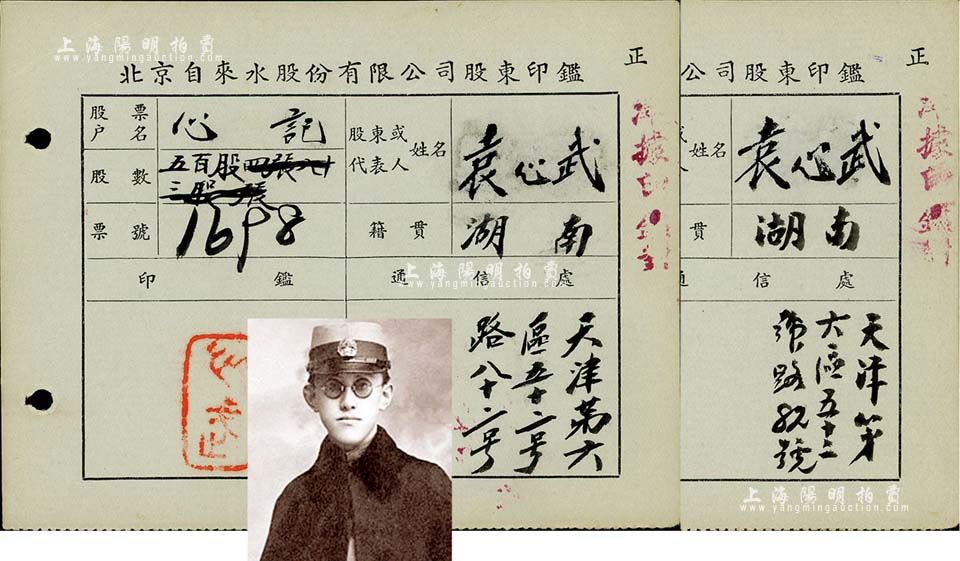 上海陽明拍賣
www.yangmingauction.com
正
北京自來水股份有限公司股東印鑑
股票
户名
心記
股東或
代表人
姓名
袁心武
股數
五百股
票號
1698
籍貫
湖南
印鑑
通信處
天津第六
區五十二号
路八十二号
上海陽明拍賣
www.yangmingauction.com
正
公司股東印鑑
姓名
袁心武
貫
湖南
信處
天津第
六區五十二
號路
號
上海陽明拍賣
www.yangmingauction.com